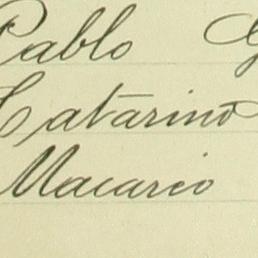 Pablo G
Catarino
Macario